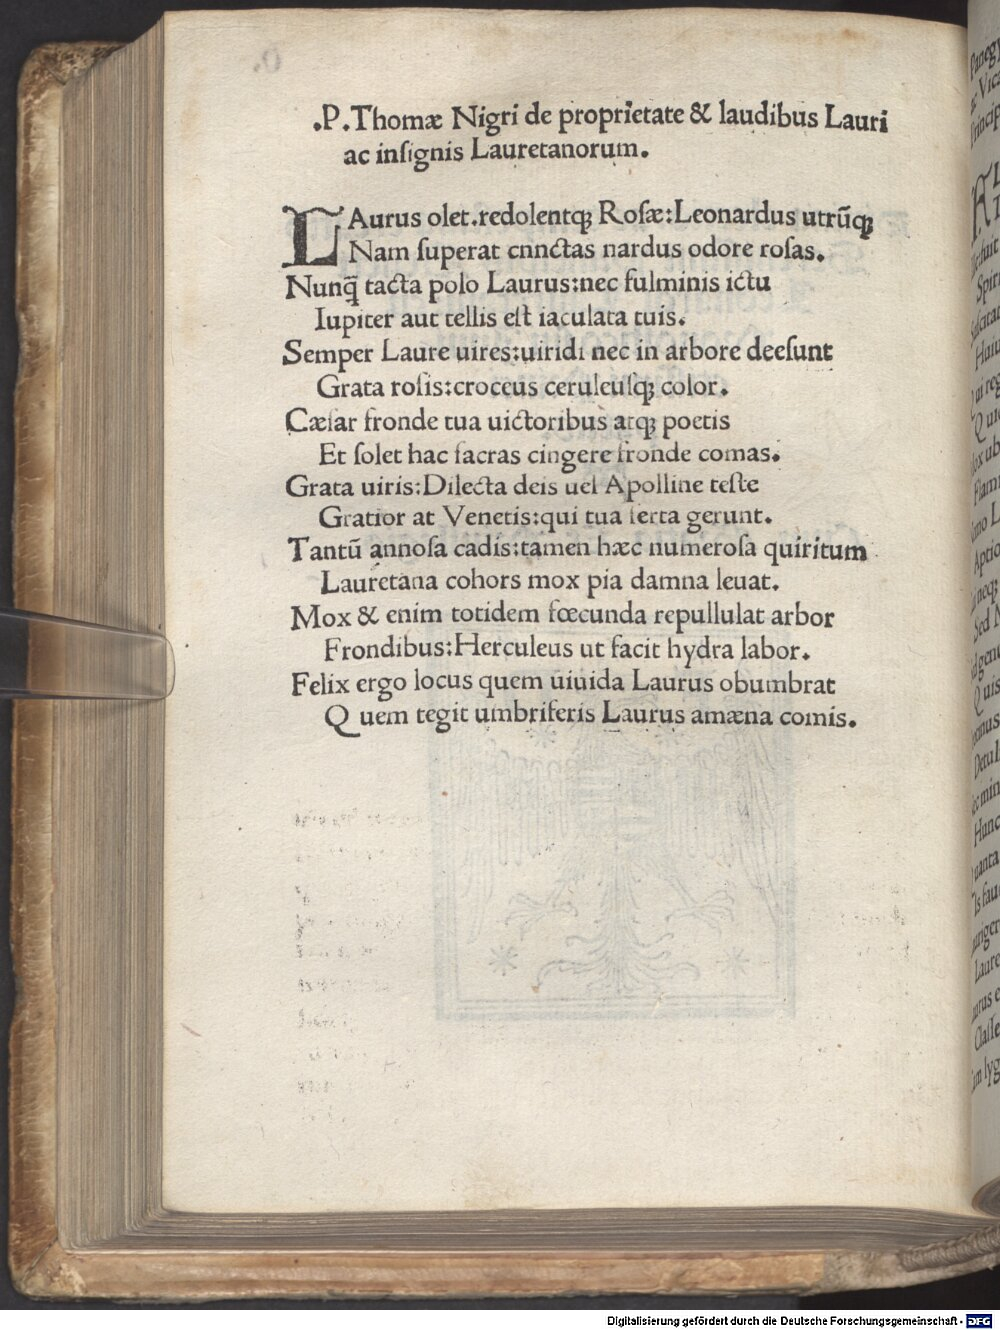 .P.Thomæ Nigri de proprietate & laudibus Lauri
ac inſignis Lauretanorum.
LAurus olet.redolentqꝫ Roſæ:Leonardus utrūqꝫ
Nam ſuperat cnnctas nardus odore roſas.
Nunq̄ tacta polo Laurus:nec fulminis ictu
Iupiter aut tellis eſt iaculata tuis.
Semper Laure uires:uiridi nec in arbore deeſunt
Grata roſis:croceus ceruleuſqꝫ color.
Cæſar fronde tua uictoribus atqꝫ poetis
Et ſolet hac ſacras cingere fronde comas.
Grata uiris:Dilecta deis uel Apolline teſte
Gratior at Venetis:qui tua ſerta gerunt.
Tantū annoſa cadis:tamen hæc numeroſa quiritum
Lauretana cohors mox pia damna leuat.
Mox & enim totidem fœcunda repullulat arbor
Frondibus:Herculeus ut facit hydra labor.
Felix ergo locus quem uiuida Laurus obumbrat
Q uem tegit umbriferis Laurus amæna comis.
Digitalisierung gefördert durch die Deutsche Forschungsgemeinschaft - DFG